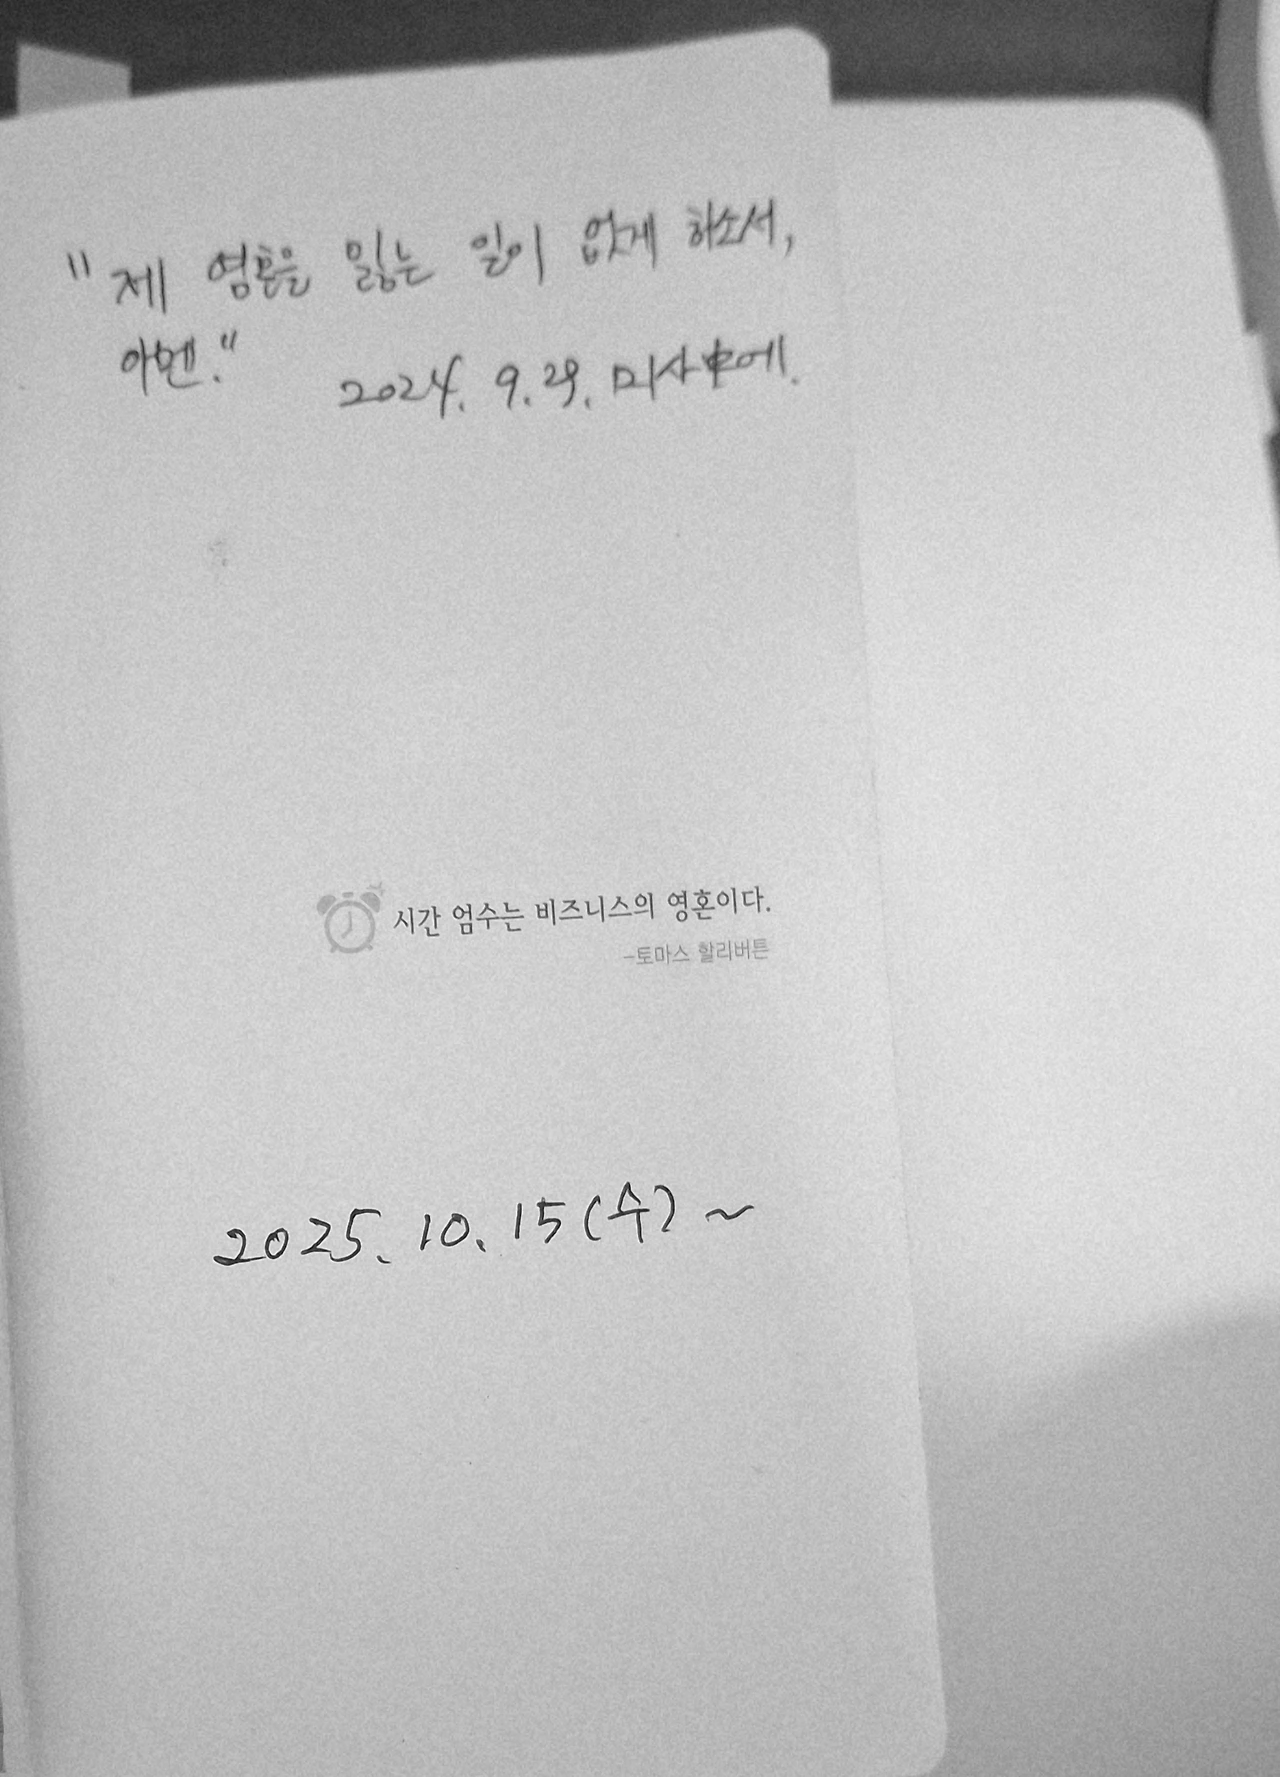 "제 영혼을 잃는 일이 없게 하소서,
아멘."
2024. 9. 29. 미사中에.
시간 엄수는 비즈니스의 영혼이다.
-토마스 할리버튼
2025. 10. 15(수) ~